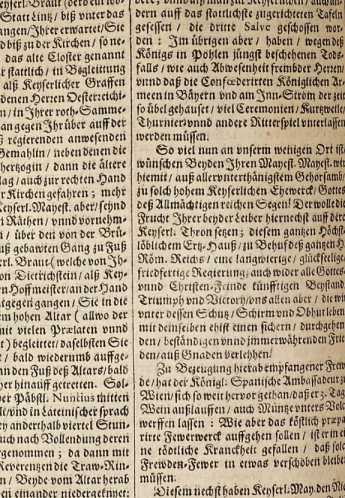 keyserl. Braut (verb
das Alte
gangen/Ihrer erwartet/Sie
dbiß zu der Kirchen/so ne-
das alte Closter genannt
r stattlich/in Begleitung
alß Keyserlicher Graffen
denen Herren Oesterreichi-
n/in Ihrer roth-Samme-
an gegen Ihr über auff der
ß regierenden anwesenden
Gemahlin/neben denen die
hertzogin/dann die ältere
lag/auch zur rechten Hand
r Kirchen gefahren; mehr
Keyserl. Mayest. aber/seynd
i Räthen/vnnd vornehm-
/über den von der Brü-
uß gebawten Gang zu Fuß
erl. Braut (welche von Ih-
on Dietrichstein/alß Key-
n Hoffmeister/an der Hand
ntgegen gangen/Sie in die
m hohen Altar (allwo der
nit vielen Prælaten vnnd
t) begleitet/daselbsten Sie
/bald wiederumb auffge-
an den Fuß deß Altars/bald
er hinauff getretten. Sol-
er Päbstl. Nuntius mitten
li/vnd in Lateinischer sprach
ey anderthalb viertel Stun-
uch nach Vollendung deren
rgenommen; da dann mit
Reverentzen die Traw-Rin-
/Beyde vom Altar herab
n einander niedergeknvet:
dern auff das stattlichste zugerichteten Tafeln
gesessen/die dritte Salve geschossen wor-
den: Im übrigen aber/haben/wegen deß
Königs in Pohlen jüngst beschehenen Tods-
falls/wie auch Abwesenheit frembder Herren
vnnd daß die Confœderirten Königlichen Ar-
meen in Bäyern vnd am Inn-Strom derzeit
so übel gehauset/viel Ceremonien/Kurtzweilen
Thurnier vnnd andere Ritterspiel vnterlassen
werden müssen.
So viel nun an vnserm wenigen Ort ist
wünschen Beyden Ihren Mayest. Mayest. wir
hiemit/auß allervnterthänigstem Gehorsamb/
zu solch hohem Keyserlichen Ehewerck/Gottes
deß Allmächtigen reichen Segen! Der wolle die
Frucht Ihrer beyder Leiber hiernechst auff die
Keyserl. Thron setzen; diesem gantzen Höchst
löblichem Ertz-Hauß/zu Behuf deß gantzen H.
Röm. Reichs/eine langwierige/glückselige
friedfertige Regierung/auch wider alle Gottes-
vnnd Christen-Feinde künfftigen Beystand/
Triumph vnd Victory/vns allen aber/die wir
vnter dessen Schutz/Schirm vnd Obhut leben
mit demselben ehist einen sichern/durchgehen
den/beständigen vnnd immerwährenden Frie-
den/auß Gnaden verleyhen/
Zu Bezeugung hierab empfangener Frew
de/hat der Königl. Spanische Ambassadeur zu
Wien/sich so weit hervor gethan/daß er 3. Tag
Wein außlauffen/auch Müntze vnters Volck
werffen lassen: Wie aber das köstlich præpa-
rirte Fewerwerck auffgehen sollen/ist er in ei-
ne tödtliche Kranckheit gefallen/daß solch
Frewden-Fewer in etwas verschoben bleiben
müssen.
Diesem nechst haben Keyserl. May. den